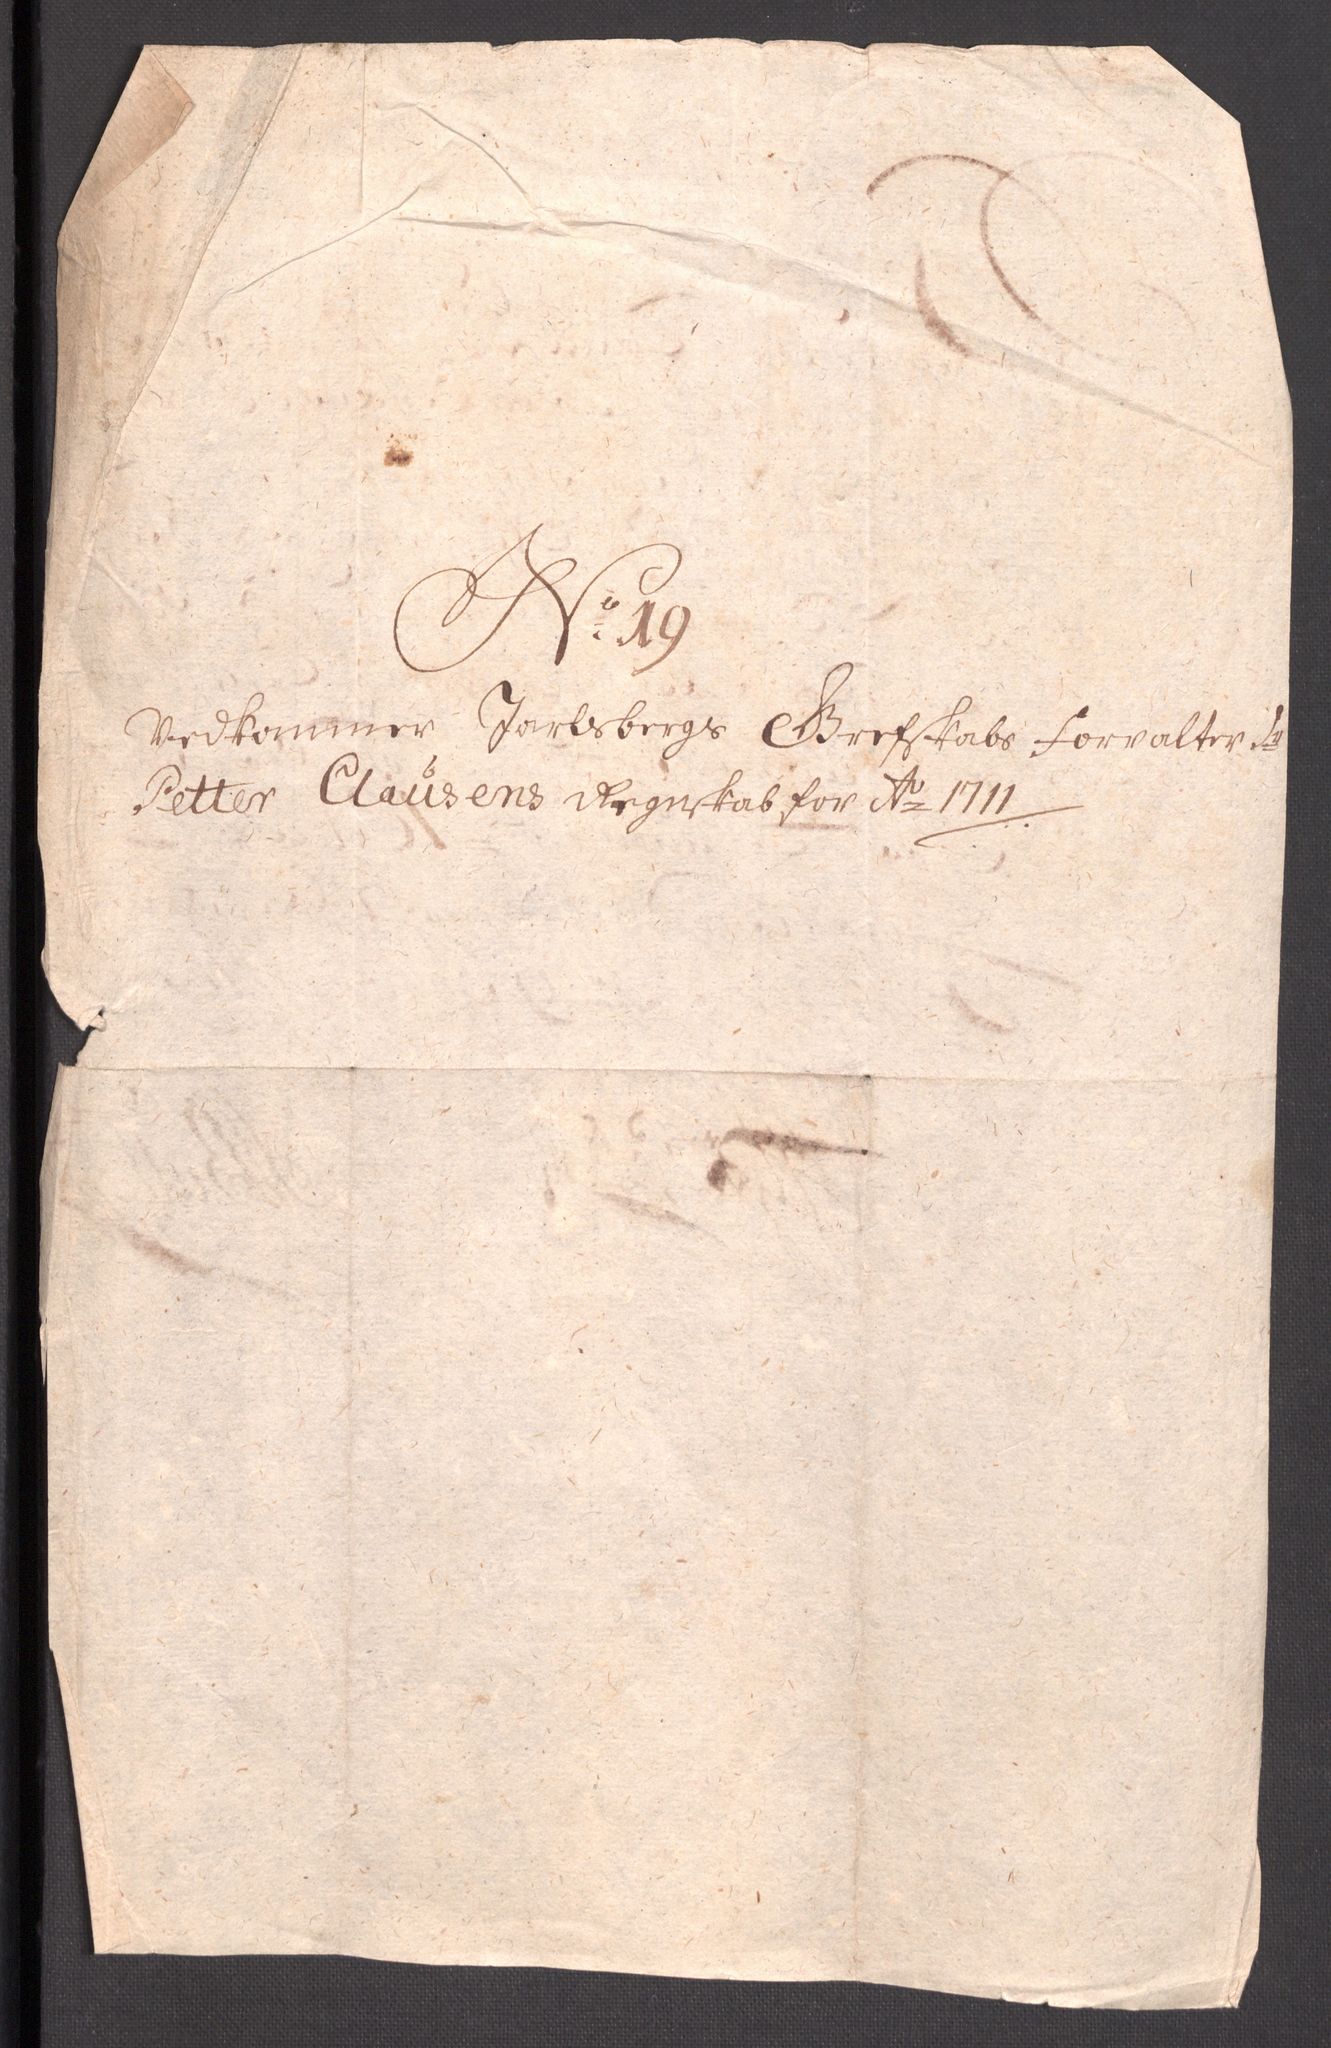 No 19
Vedkommer Jarlsbergs Grefskabs forvalter Sr
Petter Clausens Regnskab for Ao 1711